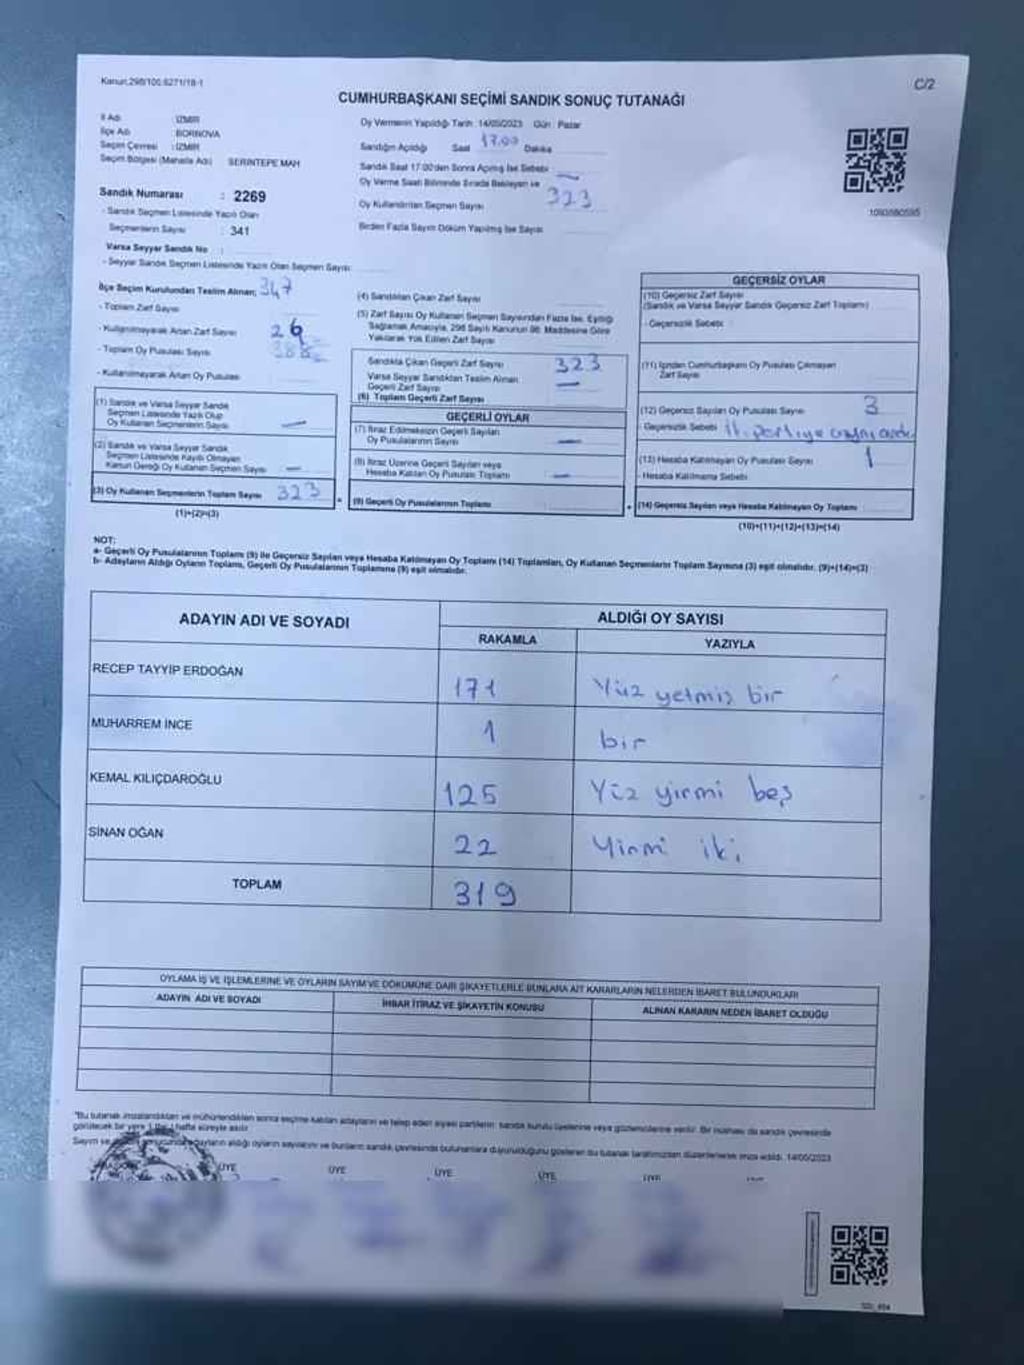 Kanun:298/100,6271/18-1
C/2
CUMHURBAŞKANI SEÇİMİ SANDIK SONUÇ TUTANAĞI
İl Adı : İZMİR
İlçe Adı : BORNOVA
Seçim Çevresi : İZMİR
Seçim Bölgesi (Mahalle Adı) SERİNTEPE MAH
Sandık Numarası : 2269
- Sandık Seçmen Listesinde Yazılı Olan
Seçmenlerin Sayısı : 341
Varsa Seyyar Sandık No :
- Seyyar Sandık Seçmen Listesinde Yazılı Olan Seçmen Sayısı:
Oy Vermenin Yapıldığı Tarih :14/05/2023 Gün : Pazar
Sandığın Açıldığı Saat 17.00 Dakika
Sandık Saat 17:00'den Sonra Açılmış İse Sebebi
Oy Verme Saati Bitiminde Sırada Bekleyen ve
Oy Kullandırılan Seçmen Sayısı 323
Birden Fazla Sayım Döküm Yapılmış İse Sayısı
1090880595
İlçe Seçim Kurulundan Teslim Alınan; 347
- Toplam Zarf Sayısı
- Kullanılmayarak Artan Zarf Sayısı 26
- Toplam Oy Pusulası Sayısı
- Kullanılmayarak Artan Oy Pusulası
(1) Sandık ve Varsa Seyyar Sandık
Seçmen Listesinde Yazılı Olup
Oy Kullanan Seçmenlerin Sayısı —
(2) Sandık ve Varsa Seyyar Sandık
Seçmen Listesinde Kayıtlı Olmayan
Kanun Gereği Oy Kullanan Seçmen Sayısı —
(3) Oy Kullanan Seçmenlerin Toplam Sayısı 323
(1)+(2)=(3)
(4) Sandıktan Çıkan Zarf Sayısı
(5) Zarf Sayısı Oy Kullanan Seçmen Sayısından Fazla İse, Eşitliği
Sağlamak Amacıyla, 298 Sayılı Kanunun 98. Maddesine Göre
Yakılarak Yok Edilen Zarf Sayısı
Sandıkta Çıkan Geçerli Zarf Sayısı 323
Varsa Seyyar Sandıktan Teslim Alınan
Geçerli Zarf Sayısı —
(6) Toplam Geçerli Zarf Sayısı
GEÇERLİ OYLAR
(7) İtiraz Edilmeksizin Geçerli Sayılan
Oy Pusulalarının Sayısı —
(8) İtiraz Üzerine Geçerli Sayılan veya
Hesaba Katılan Oy Pusulası Toplamı —
(9) Geçerli Oy Pusulalarının Toplamı
GEÇERSİZ OYLAR
(10) Geçersiz Zarf Sayısı
(Sandık ve Varsa Seyyar Sandık Geçersiz Zarf Toplamı)
- Geçersizlik Sebebi :
(11) İçinden Cumhurbaşkanı Oy Pusulası Çıkmayan
Zarf Sayısı
(12) Geçersiz Sayılan Oy Pusulası Sayısı 3
- Geçersizlik Sebebi
(13) Hesaba Katılmayan Oy Pusulası Sayısı 1
- Hesaba Katılmama Sebebi
(14) Geçersiz Sayılan veya Hesaba Katılmayan Oy Toplamı
(10)+(11)+(12)+(13)=(14)
NOT:
a- Geçerli Oy Pusulalarının Toplamı (9) ile Geçersiz Sayılan veya Hesaba Katılmayan Oy Toplamı (14) Toplamları, Oy Kullanan Seçmenlerin Toplam Sayısına (3) eşit olmalıdır. (9)+(14)=(3)
b- Adayların Aldığı Oyların Toplamı, Geçerli Oy Pusulalarının Toplamına (9) eşit olmalıdır.
ADAYIN ADI VE SOYADI
ALDIĞI OY SAYISI
RAKAMLA YAZIYLA
RECEP TAYYİP ERDOĞAN 171 Yüz yetmiş bir
MUHARREM İNCE 1 bir
KEMAL KILIÇDAROĞLU 125 Yüz yirmi beş
SİNAN OĞAN 22 Yirmi iki
TOPLAM 319
OYLAMA İŞ VE İŞLEMLERİNE VE OYLARIN SAYIM VE DÖKÜMÜNE DAİR ŞİKAYETLERLE BUNLARA AİT KARARLARIN NELERDEN İBARET BULUNDUKLARI
ADAYIN ADI VE SOYADI İHBAR İTİRAZ VE ŞİKAYETİN KONUSU ALINAN KARARIN NEDEN İBARET OLDUĞU
"Bu tutanak imzalandıktan ve mühürlendikten sonra seçime katılan adayların ve talep eden siyasi partilerin, sandık kurulu üyelerine veya gözlemcilerine verilir. Bir nüshası da sandık çevresinde
görülecek bir yere 1 (bir) hafta süreyle asılır.
Sayım ve sonucunda adayların aldığı oyların sayılarını ve bunların sandık çevresinde bulunanlara duyurulduğunu gösteren bu tutanak tarafımızdan düzenlenerek imza edildi. 14/05/2023
ÜYE ÜYE ÜYE ÜYE ÜYE